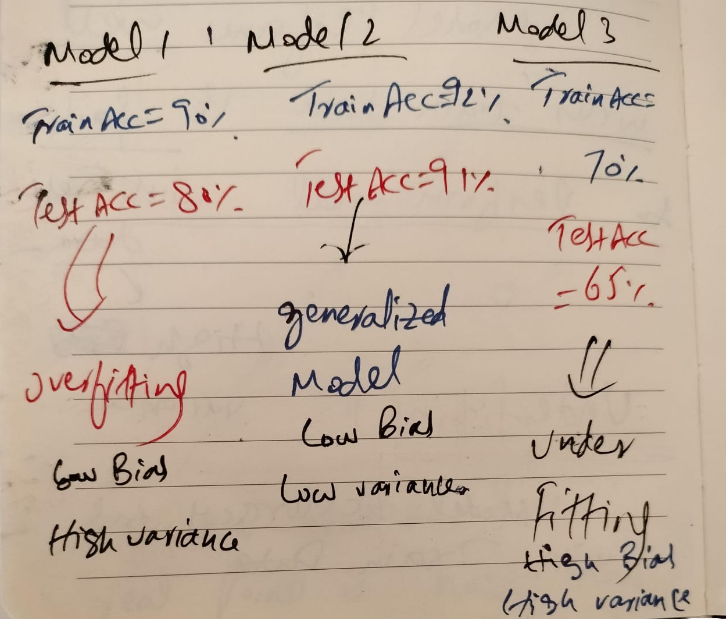 Model 1
Train Acc = 90%.
Test Acc = 80%.
overfitting
Low Bias
High variance
Model 2
Train Acc=92%.
Test Acc=91%.
generalized
Model
Low Bias
Low variance.
Model 3
Train Acc=
70%.
Test Acc
=65%.
Under
Fitting
High Bias
High variance